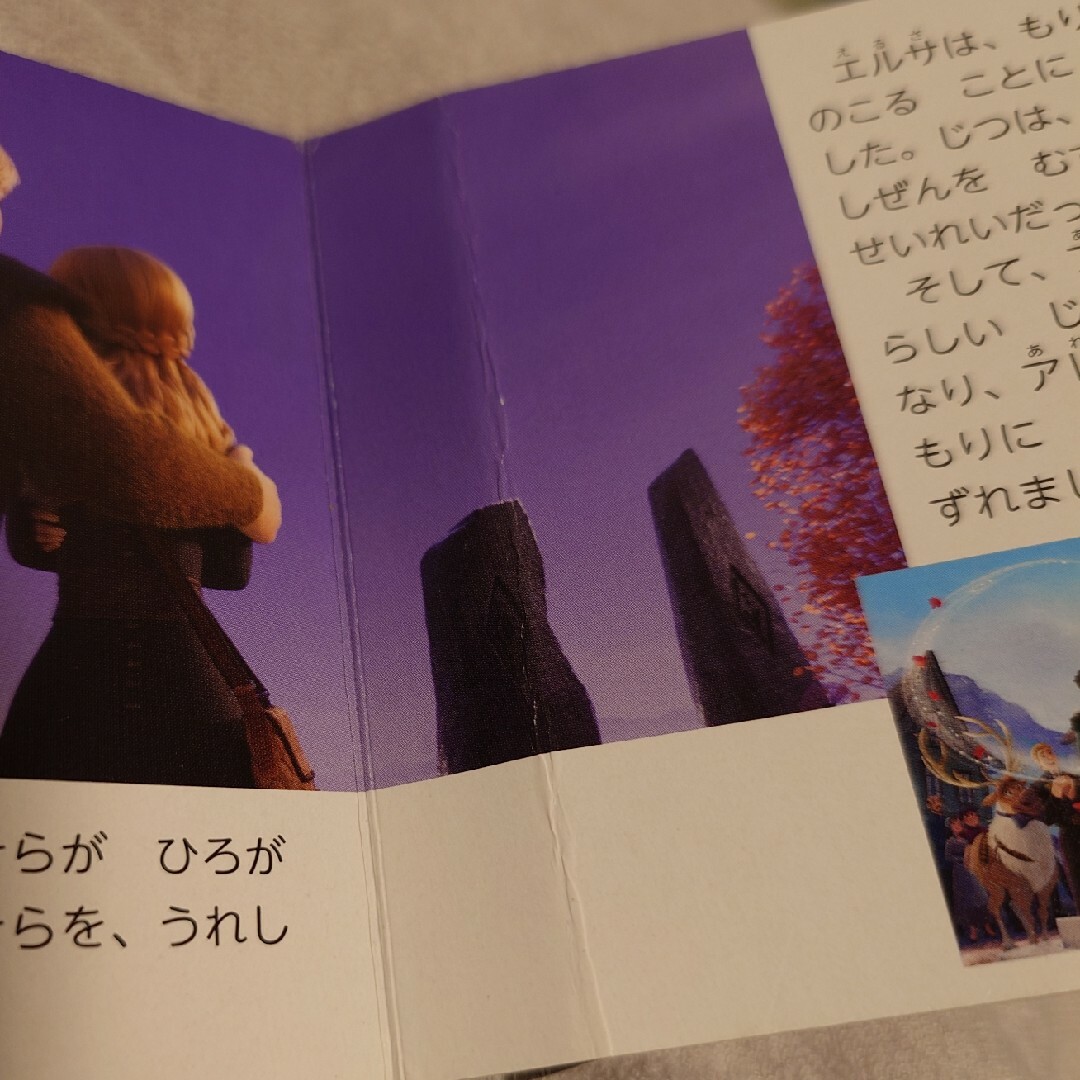 エルサは、もり
のこる　ことに
した。じつは、
しぜんを　むす
せいれいだっ
そして、
らしい　じ
なり、アレ
もりに
ずれまし
そらが　ひろが
そらを、うれし